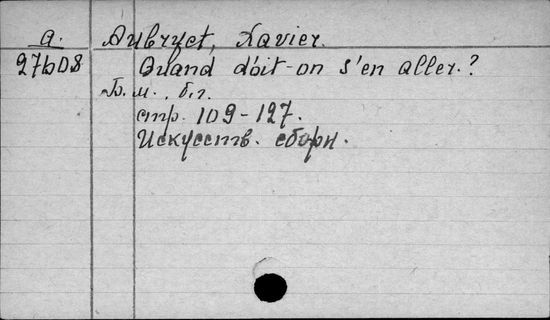 a. Aubryet, Xavier.
27608 Quand doit-on s'en aller.?
Б. м., б. г.
стр. 109-127.
Искусств. сборн.